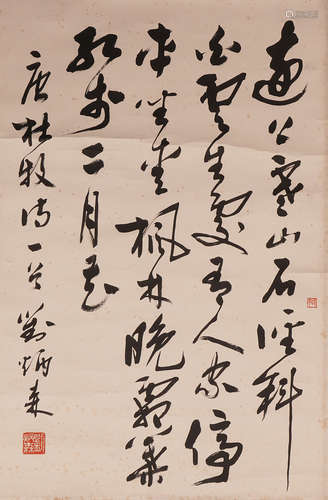 遠上寒山石徑斜
白雲生處有人家停
車坐愛楓林晚霜葉
紅於二月花
唐杜牧詩一首劉炳森